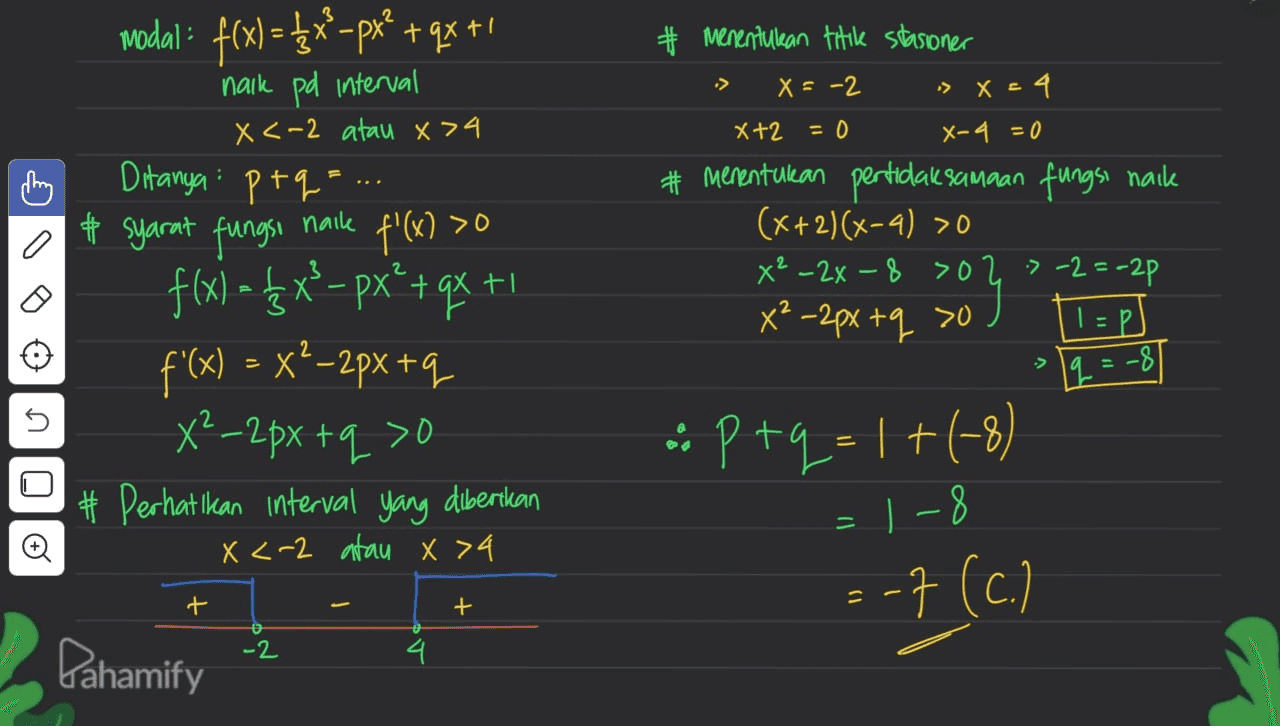 modal: f(x) = ⅓x³ - px² + qx + 1
naik pd interval
x < -2 atau x > 4
Ditanya: p + q = ...
# syarat fungsi naik f'(x) > 0
f(x) = ⅓x³ - px² + qx + 1
f'(x) = x² - 2px + q
x² - 2px + q > 0
# Perhatikan interval yang diberikan
x < -2 atau x > 4
+ - +
-2 4
# Menentukan titik stasioner
> x = -2 > x = 4
x + 2 = 0 x - 4 = 0
# Menentukan pertidaksamaan fungsi naik
(x + 2)(x - 4) > 0
x² - 2x - 8 > 0 } > -2 = -2p
x² - 2px + q > 0 1 = p
> q = -8
∴ p + q = 1 + (-8)
= 1 - 8
= -7 (C.)
Pahamify